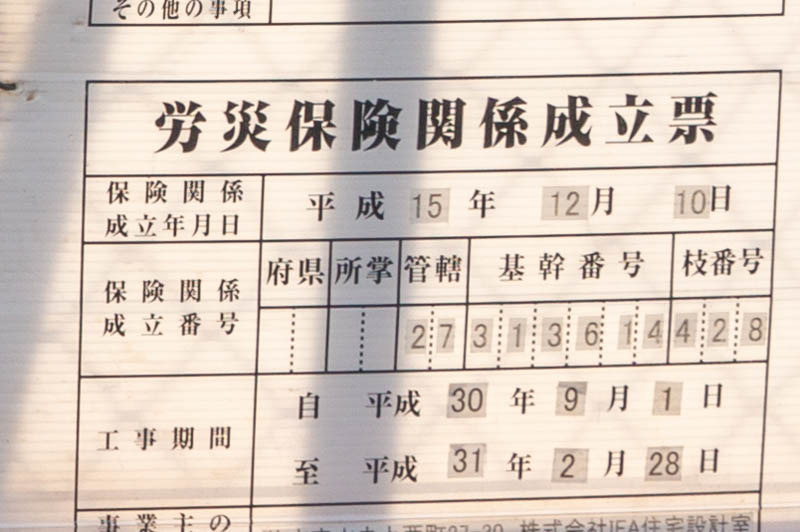 その他の事項
労災保険関係成立票
保険関係
成立年月日
平成 15 年 12 月 10 日
保険関係
成立番号
府県 所掌 管轄 基幹番号 枝番号
2 7 3 1 3 6 1 4 4 2 8
工事期間
自 平成 30 年 9 月 1 日
至 平成 31 年 2 月 28 日
事業主の
西町27-30 株式会社IFA住宅設計室